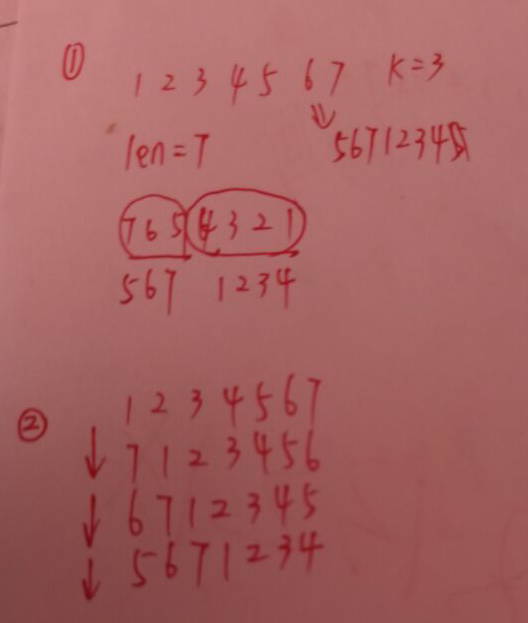 ① 1 2 3 4 5 6 7 K=3
⇓
len=7 5671234
7 6 5 4 3 2 1
567 1234
② 1 2 3 4 5 6 7
↓ 7 1 2 3 4 5 6
↓ 6 7 1 2 3 4 5
↓ 5 6 7 1 2 3 4